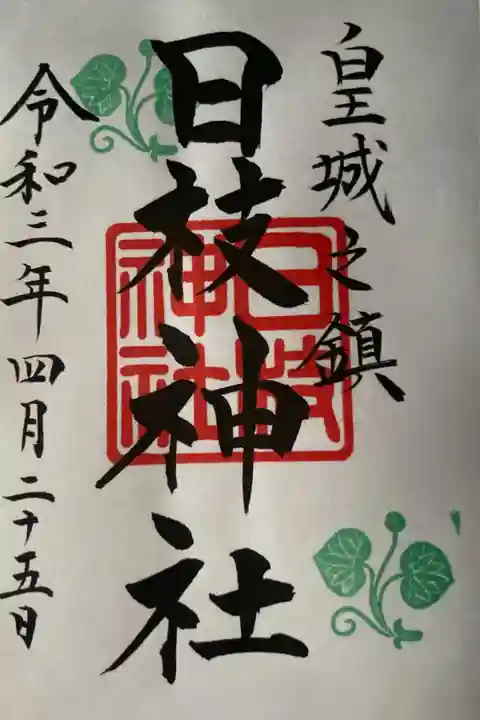 皇城之鎮
日枝神社
日枝神社
令和三年四月二十五日